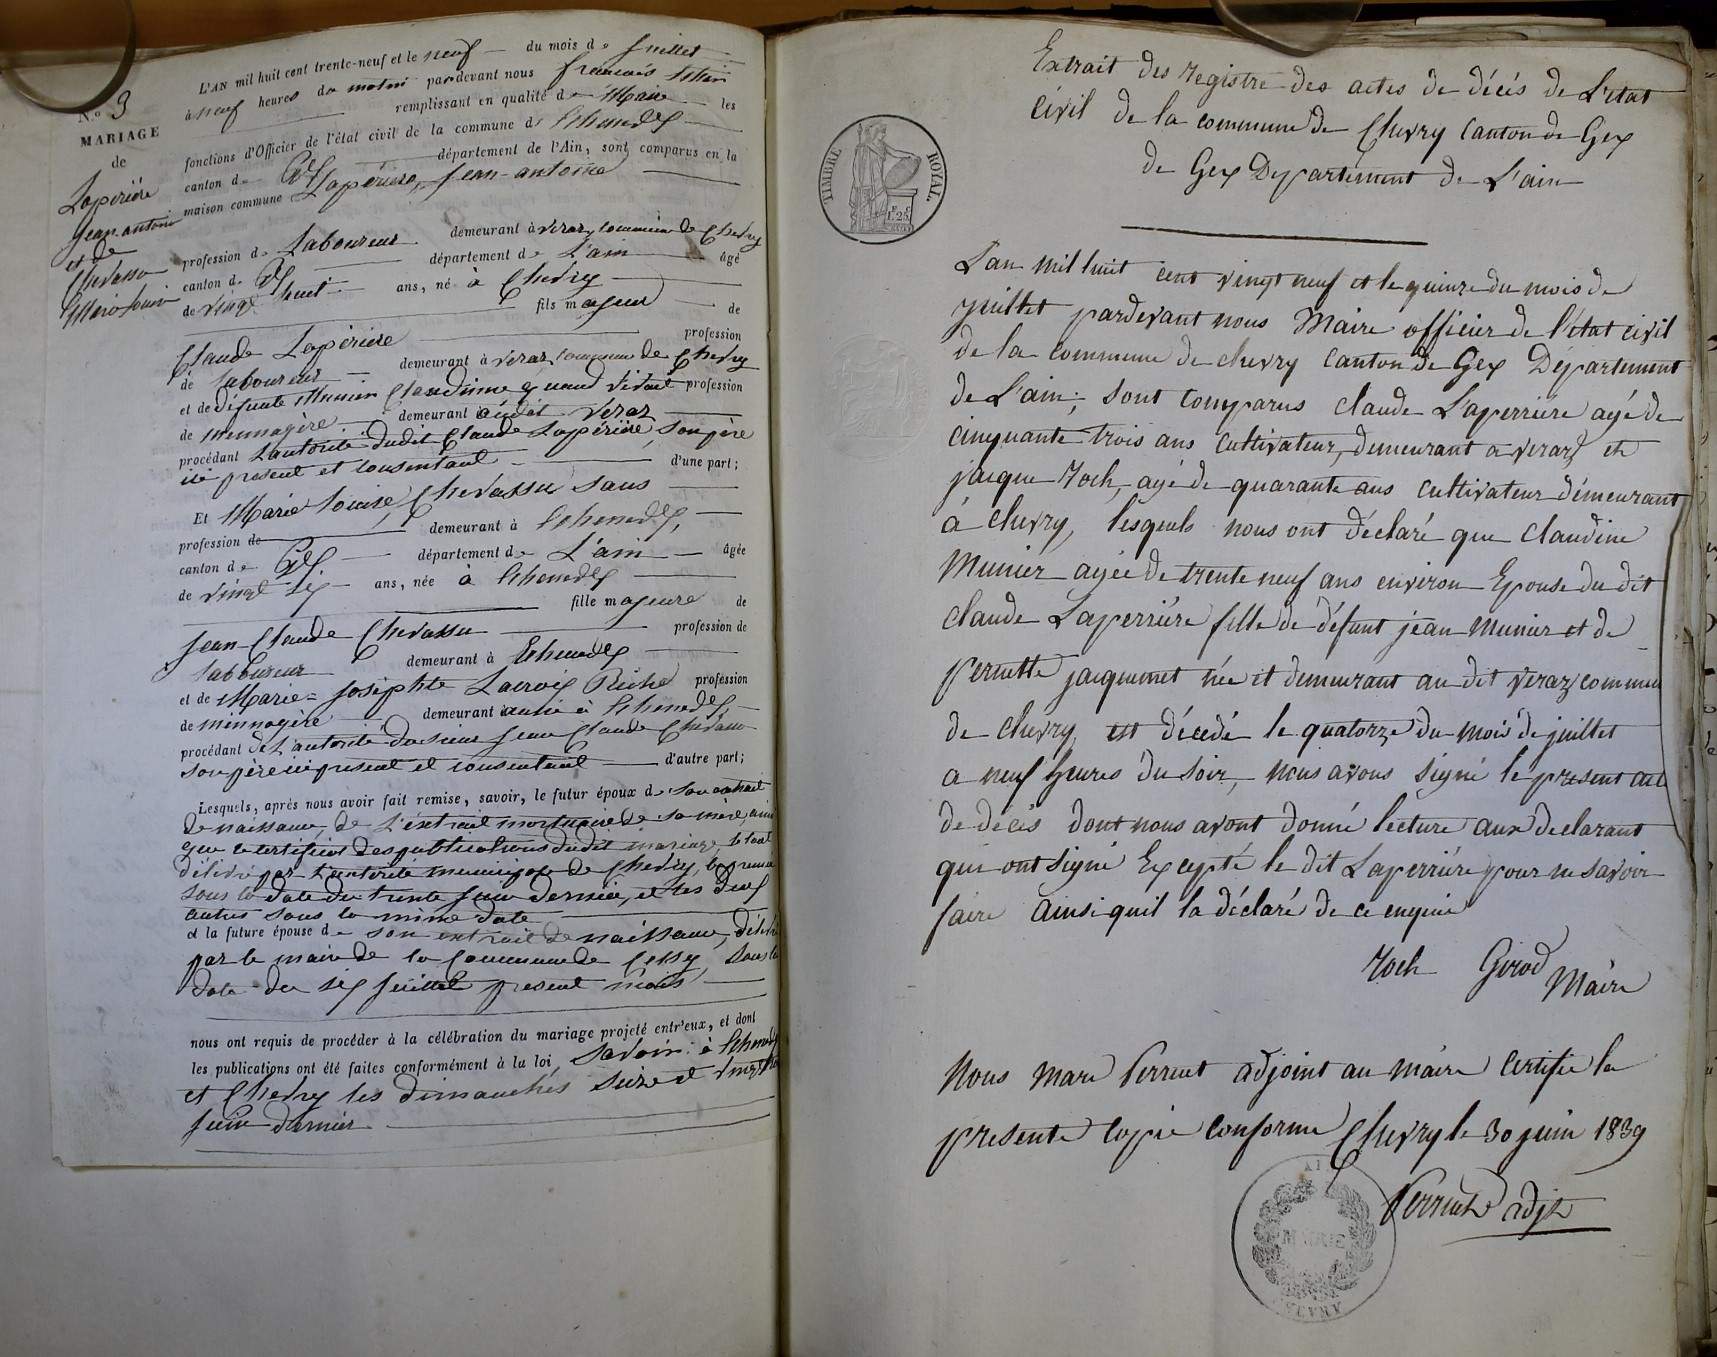 N.o 3
MARIAGE
de
Lapérière
Jean antoine
et de
Chevassu
Marie Louise
L'AN mil huit cent trente-neuf et le neuf du mois de Juillet
à neuf heures du matin pardevant nous françois
remplissant en qualité de Maire les
fonctions d'Officier de l'état civil de la commune d'Echenevex
canton de Gex département de l'Ain, sont comparus en la
maison commune Lapérière, Jean-antoine
profession de Laboureur demeurant à veraz, commune de Chevry
canton de Gex département de L'ain âgé
de vingt huit ans, né à Chevry
fils majeur de
Claude Lapérière profession
de laboureur demeurant à veraz commune de Chevry
et de défunte Munier Claudine quand vivait profession
de mennagère demeurant audit Veraz
procédant L'autorité dudit Claude Lapérière, son père
ici présent et consentant d'une part;
Et Marie Louise Chevassu sans
profession de demeurant à Echenevex,
canton de Gex département de L'ain âgée
de vingt six ans, née à Echenevex
fille majeure de
Jean Claude Chevassu profession de
laboureur demeurant à Echenevex
et de Marie-Josephte Lacroix Riche profession
de mennagère demeurant aussi à Echenevex,
procédant de L'autorité du sieur Jean Claude Chevassu
son père ici présent et consentant d'autre part;
Lesquels, après nous avoir fait remise, savoir, le futur époux de son extrait
de naissance, de L'éxtrait mortuaire de sa mère, ainsi
que certificat des publications dudit mariage, le tout
délivré par L'autorité municipale de Chevry, le premier
sous la date du trente Juin dernier, et les deux
autres sous la même date
et la future épouse de son extrait de naissance, délivré
par le maire de la Commune de Cessy, sous la
date du six Juillet présent mois
nous ont requis de procéder à la célébration du mariage projeté entr'eux, et dont
les publications ont été faites conformément à la loi, savoir: à Echenevex
et Chevry les dimanches seize et vingt trois
Juin dernier
TIMBRE ROYAL
F. C
1. 25
Extrait des registre des actes de décés de L'etat
civil de la commune de Chevry Canton de Gex
de Gex Departement de L'ain
L'an mil huit cent vingt neuf et le quinze du mois de
juillet pardevant nous Maire officier de l'état civil
de la commune de chevry Canton de Gex Département
de L'ain; sont comparus claude Laperrière agé de
cinquante trois ans cultivateur, demeurant a veraz et
jacque Roch, agé de quarante ans cultivateur démeurant
à chevry, lesquels nous ont déclaré que claudine
Munier agée de trente neuf ans environ Epouse du dit
claude Laperrière fille de défunt jean Munier et de
pernette jacquemet née et demeurant au dit veraz commune
de chevry, est décédé le quatorze du mois de juillet
a neuf heures du soir, nous avons signé le présent acte
de décès dont nous avont donné lecture aux declarant
qui ont signé Excepté le dit Laperrière pour ne savoir
faire ainsi quil la déclaré de ce enquis
Roch Girod
Maire
Nous Marc Perruet adjoint au maire certifie la
présente copie conforme Chevry le 30 juin 1839
Perruet adjt
MAIRIE
CHEVRY
AIN